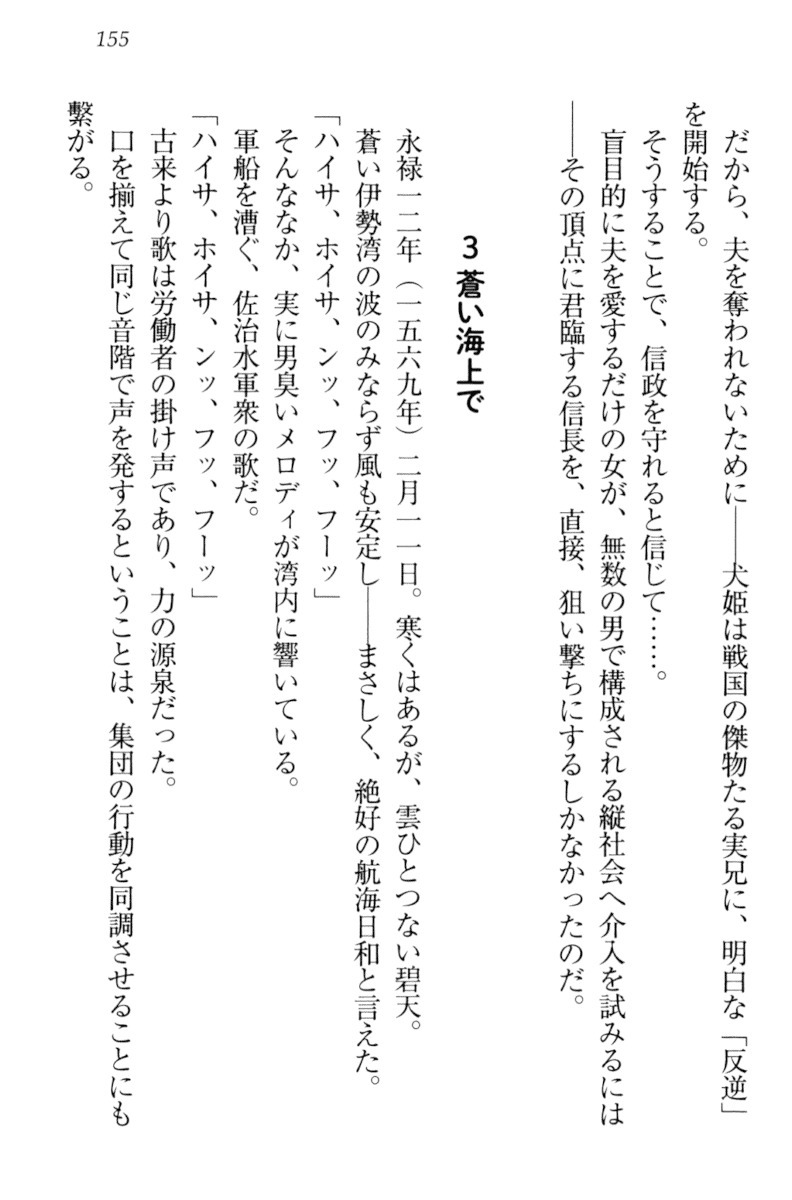 155
だから、夫を奪われないために――犬姫は戦国の傑物たる実兄に、明白な「反逆」
を開始する。
そうすることで、信政を守れると信じて……。
盲目的に夫を愛するだけの女が、無数の男で構成される縦社会へ介入を試みるには
――その頂点に君臨する信長を、直接、狙い撃ちにするしかなかったのだ。
3 蒼い海上で
永禄一二年（一五六九年）二月一一日。寒くはあるが、雲ひとつない碧天。
蒼い伊勢湾の波のみならず風も安定し――まさしく、絶好の航海日和と言えた。
「ハイサ、ホイサ、ンッ、フッ、フーッ」
そんななか、実に男臭いメロディが湾内に響いている。
軍船を漕ぐ、佐治水軍衆の歌だ。
「ハイサ、ホイサ、ンッ、フッ、フーッ」
古来より歌は労働者の掛け声であり、力の源泉だった。
口を揃えて同じ音階で声を発するということは、集団の行動を同調させることにも
繋がる。